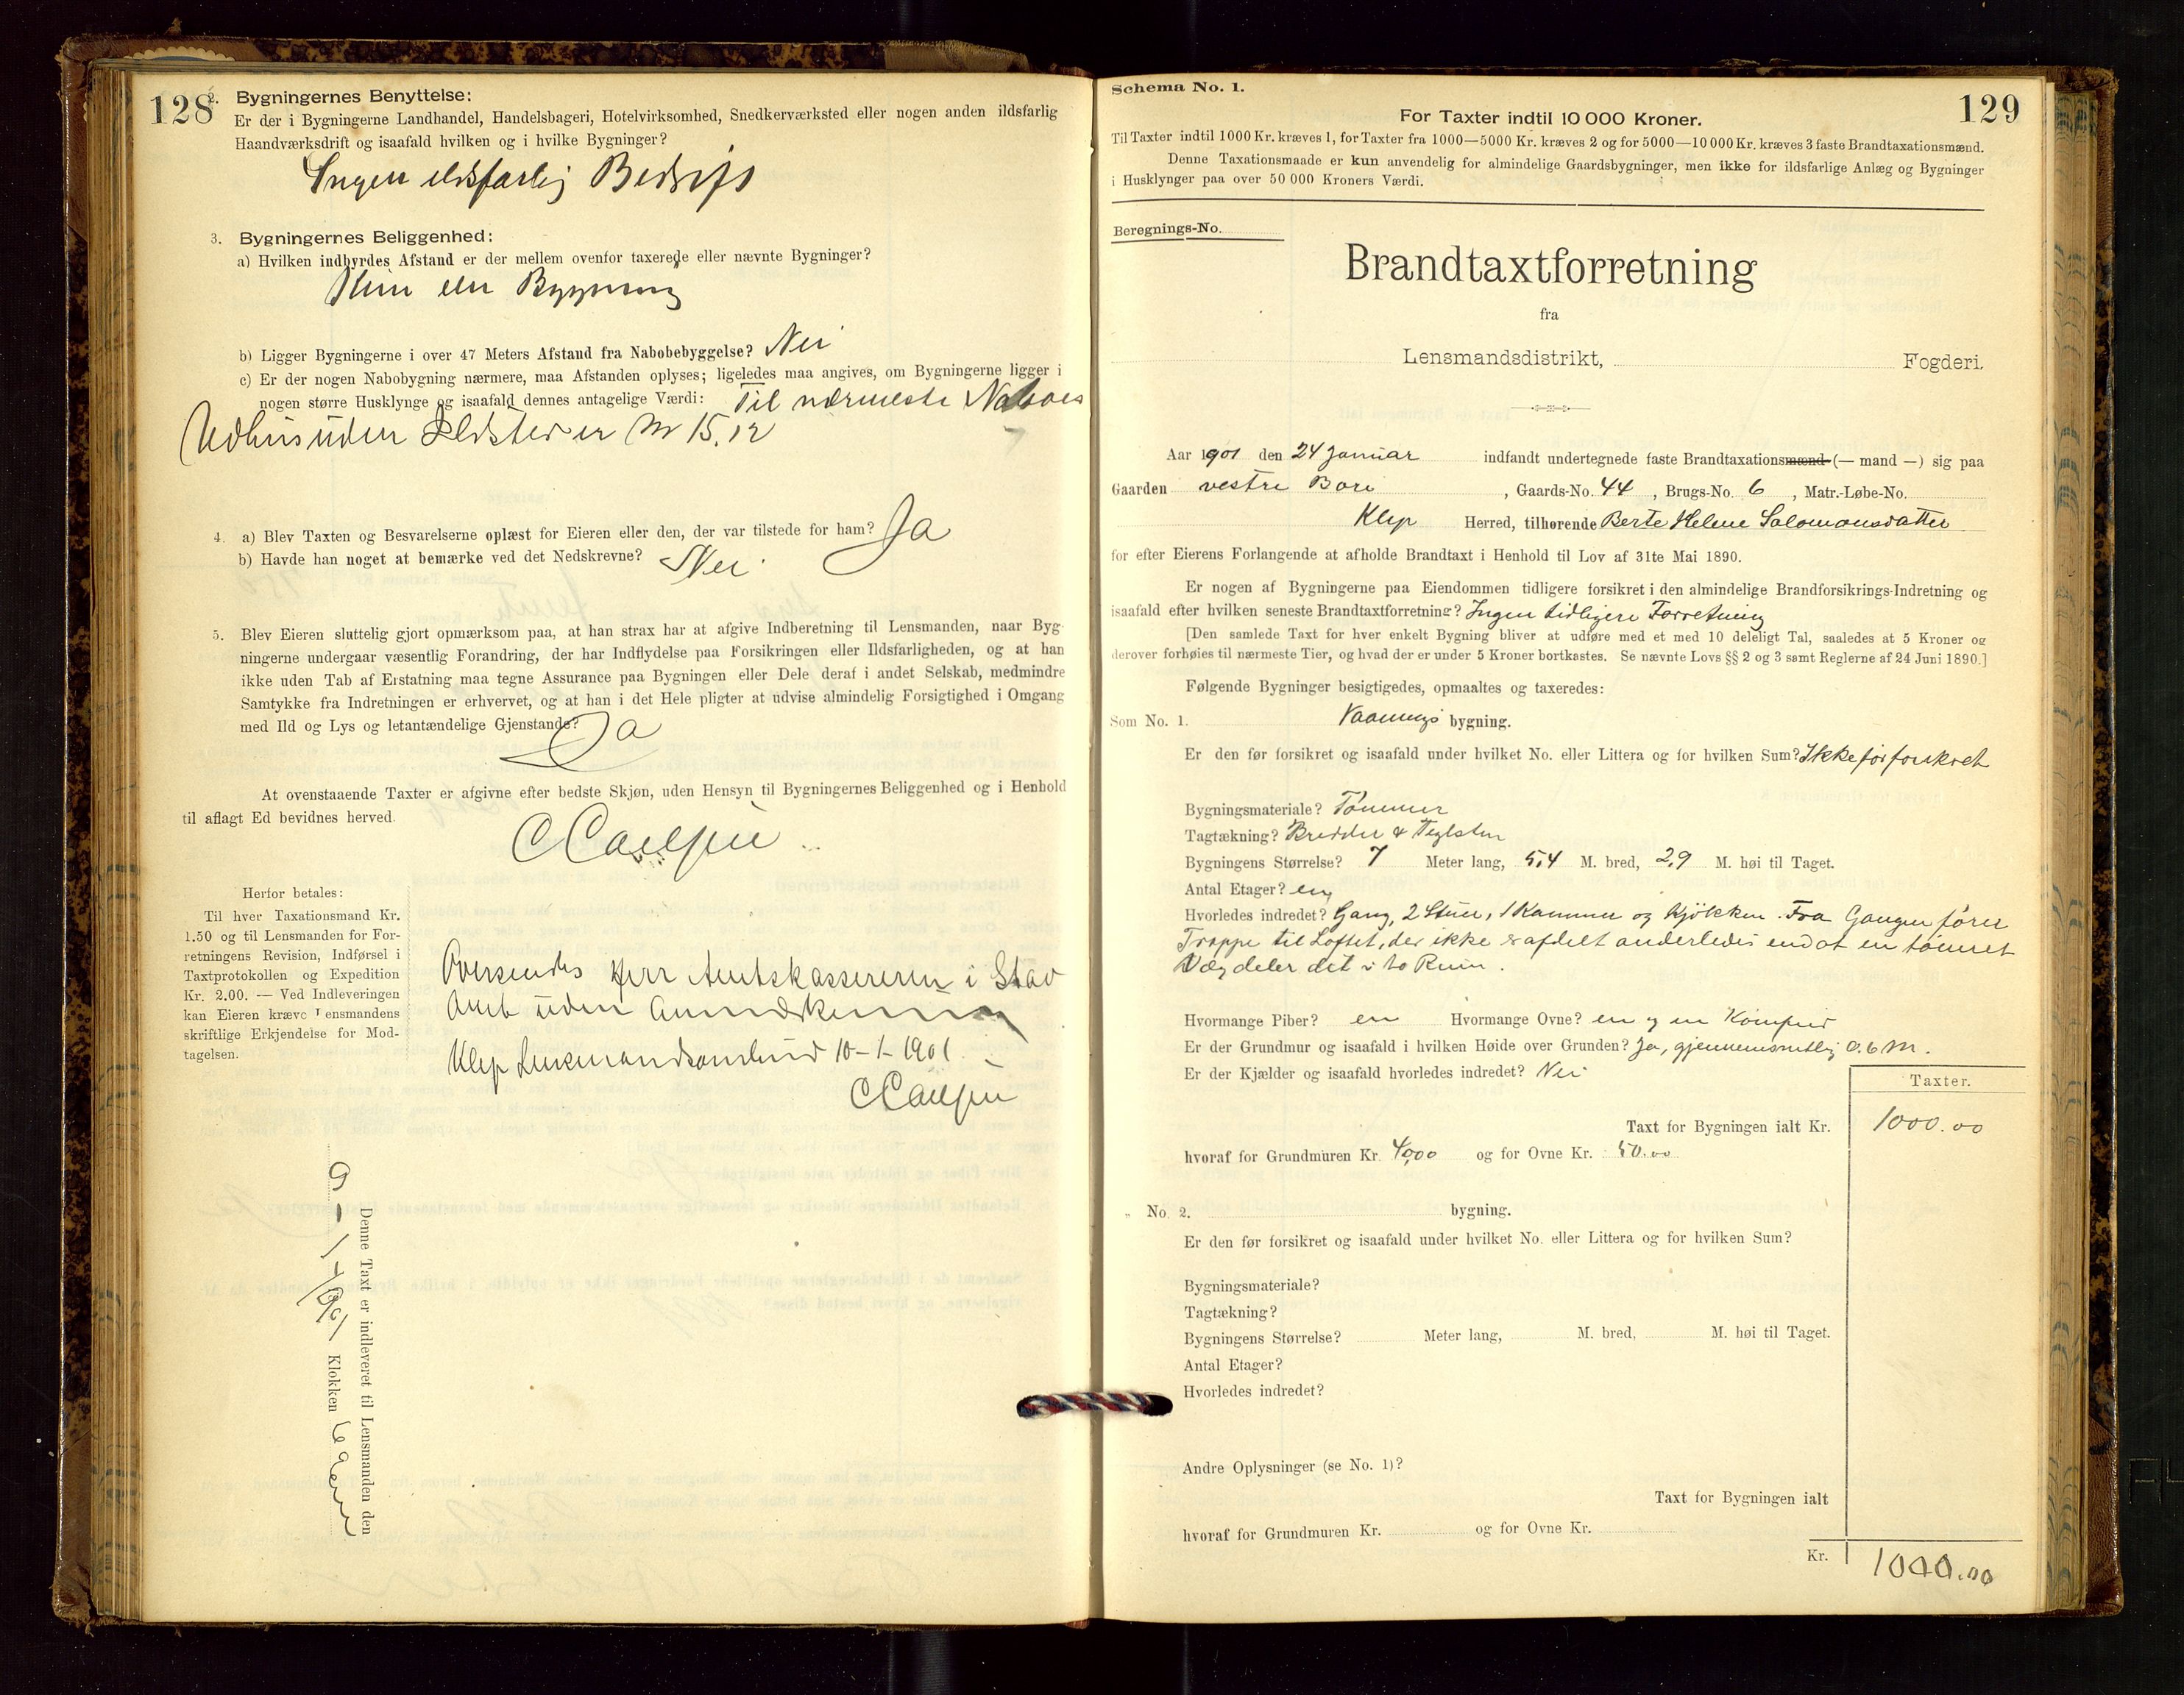 128
2. Bygningernes Benyttelse:
Er der i Bygningerne Landhandel, Handelsbageri, Hotelvirksomhed, Snedkerværksted eller nogen anden ildsfarlig
Haandværksdrift og isaafald hvilken og i hvilke Bygninger?
Ingen ildsfarlig Bedrift
3. Bygningernes Beliggenhed:
a) Hvilken indbyrdes Afstand er der mellem ovenfor taxerede eller nævnte Bygninger?
Kun een Bygning
b) Ligger Bygningerne i over 47 Meters Afstand fra Nabobebyggelse? Nei
c) Er der nogen Nabobygning nærmere, maa Afstanden oplyses; ligeledes maa angives, om Bygningerne ligger i
nogen større Husklynge og isaafald dennes antagelige Værdi: Til nærmeste Naboes
Udhus uden Ildsted er M 15.12
4. a) Blev Taxten og Besvarelserne oplæst for Eieren eller den, der var tilstede for ham? Ja
b) Havde han noget at bemærke ved det Nedskrevne? Nei
5. Blev Eieren sluttelig gjort opmærksom paa, at han strax har at afgive Indberetning til Lensmanden, naar Byg-
ningerne undergaar væsentlig Forandring, der har Indflydelse paa Forsikringen eller Ildsfarligheden, og at han
ikke uden Tab af Erstatning maa tegne Assurance paa Bygningen eller Dele deraf i andet Selskab, medmindre
Samtykke fra Indretningen er erhvervet, og at han i det Hele pligter at udvise almindelig Forsigtighed i Omgang
med Ild og Lys og letantændelige Gjenstande?
Ja
At ovenstaaende Taxter er afgivne efter bedste Skjøn, uden Hensyn til Bygningernes Beliggenhed og i Henhold
til aflagt Ed bevidnes herved.
Herfor betales:
Til hver Taxationsmand Kr.
1.50 og til Lensmanden for For-
retningens Revision, Indførsel i
Taxtprotokollen og Expedition
Kr. 2.00. — Ved Indleveringen
kan Eieren kræve Lensmandens
skriftlige Erkjendelse for Mod-
tagelsen.
Oversendes Herr Amtskassereren i Stav
Amt uden Anmærkning
Klep Lensmandsombud 10-1-1901
Denne Taxt er indleveret til Lensmanden den
9-1-1901 Klokken 6
Schema No. 1.
129
For Taxter indtil 10 000 Kroner.
Til Taxter indtil 1000 Kr. kræves 1, for Taxter fra 1000—5000 Kr. kræves 2 og for 5000—10 000 Kr. kræves 3 faste Brandtaxationsmænd.
Denne Taxationsmaade er kun anvendelig for almindelige Gaardsbygninger, men ikke for ildsfarlige Anlæg og Bygninger
i Husklynger paa over 50 000 Kroners Værdi.
Beregnings-No.
Brandtaxtforretning
fra
Lensmandsdistrikt, Fogderi.
Aar 1901 den 24 Januar indfandt undertegnede faste Brandtaxationsmænd (— mand —) sig paa
Gaarden vestre Bore , Gaards-No. 44 , Brugs-No. 6 , Matr.-Løbe-No.
Klep Herred, tilhørende Berte Helene Salomonsdatter
for efter Eierens Forlangende at afholde Brandtaxt i Henhold til Lov af 31te Mai 1890.
Er nogen af Bygningerne paa Eiendommen tidligere forsikret i den almindelige Brandforsikrings-Indretning og
isaafald efter hvilken seneste Brandtaxtforretning? Ingen tidligere Forretning
[Den samlede Taxt for hver enkelt Bygning bliver at udføre med et med 10 deleligt Tal, saaledes at 5 Kroner og
derover forhøies til nærmeste Tier, og hvad der er under 5 Kroner bortkastes. Se nævnte Lovs §§ 2 og 3 samt Reglerne af 24 Juni 1890.]
Følgende Bygninger besigtigedes, opmaaltes og taxeredes:
Som No. 1. Vaanings bygning.
Er den før forsikret og isaafald under hvilket No. eller Littera og for hvilken Sum? Ikke før forsikret
Bygningsmateriale? Tømmer
Tagtækning? Bredder & Teglsten
Bygningens Størrelse? 7 Meter lang, 5,4 M. bred, 2,9 M. høi til Taget.
Antal Etager? en
Hvorledes indredet? Gang, 2 Stuer, 1 Kammer og Kjøkken. Fra Gangen fører
Trappe til Loftet, der ikke er afdelt anderledes end at en tømret
Væg deler det i to Rum.
Hvormange Piber? en Hvormange Ovne? en og en Komfur
Er der Grundmur og isaafald i hvilken Høide over Grunden? Ja, gjennemsnitlig 0.6 M.
Er der Kjælder og isaafald hvorledes indredet? Nei
Taxter.
Taxt for Bygningen ialt Kr. 1000.00
hvoraf for Grundmuren Kr. 40,00 og for Ovne Kr. 50.00
" No. 2. bygning.
Er den før forsikret og isaafald under hvilket No. eller Littera og for hvilken Sum?
Bygningsmateriale?
Tagtækning?
Bygningens Størrelse? Meter lang, M. bred, M. høi til Taget.
Antal Etager?
Hvorledes indredet?
Andre Oplysninger (se No. 1)?
Taxt for Bygningen ialt
hvoraf for Grundmuren Kr. og for Ovne Kr.
Kr. 1000.00